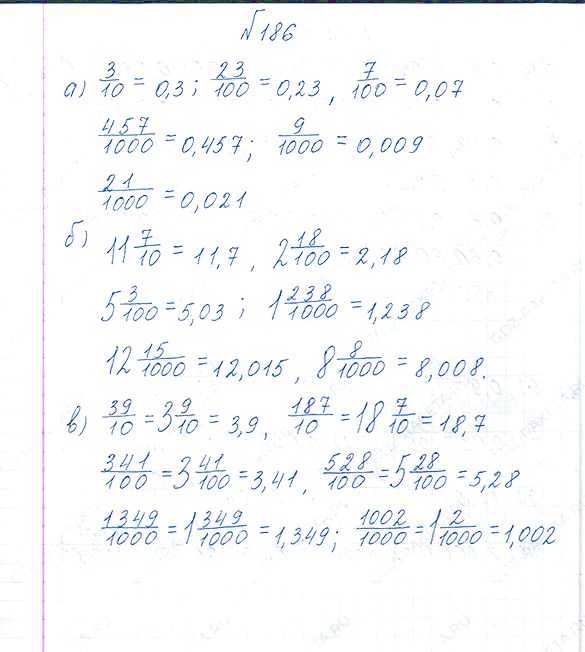 №186
а) 3/10 = 0,3; 23/100 = 0,23, 7/100 = 0,07
457/1000 = 0,457; 9/1000 = 0,009
21/1000 = 0,021
б) 11 7/10 = 11,7, 2 18/100 = 2,18
5 3/100 = 5,03; 1 238/1000 = 1,238
12 15/1000 = 12,015, 8 8/1000 = 8,008.
в) 39/10 = 3 9/10 = 3,9, 187/10 = 18 7/10 = 18,7
341/100 = 3 41/100 = 3,41, 528/100 = 5 28/100 = 5,28
1349/1000 = 1 349/1000 = 1,349; 1002/1000 = 1 2/1000 = 1,002